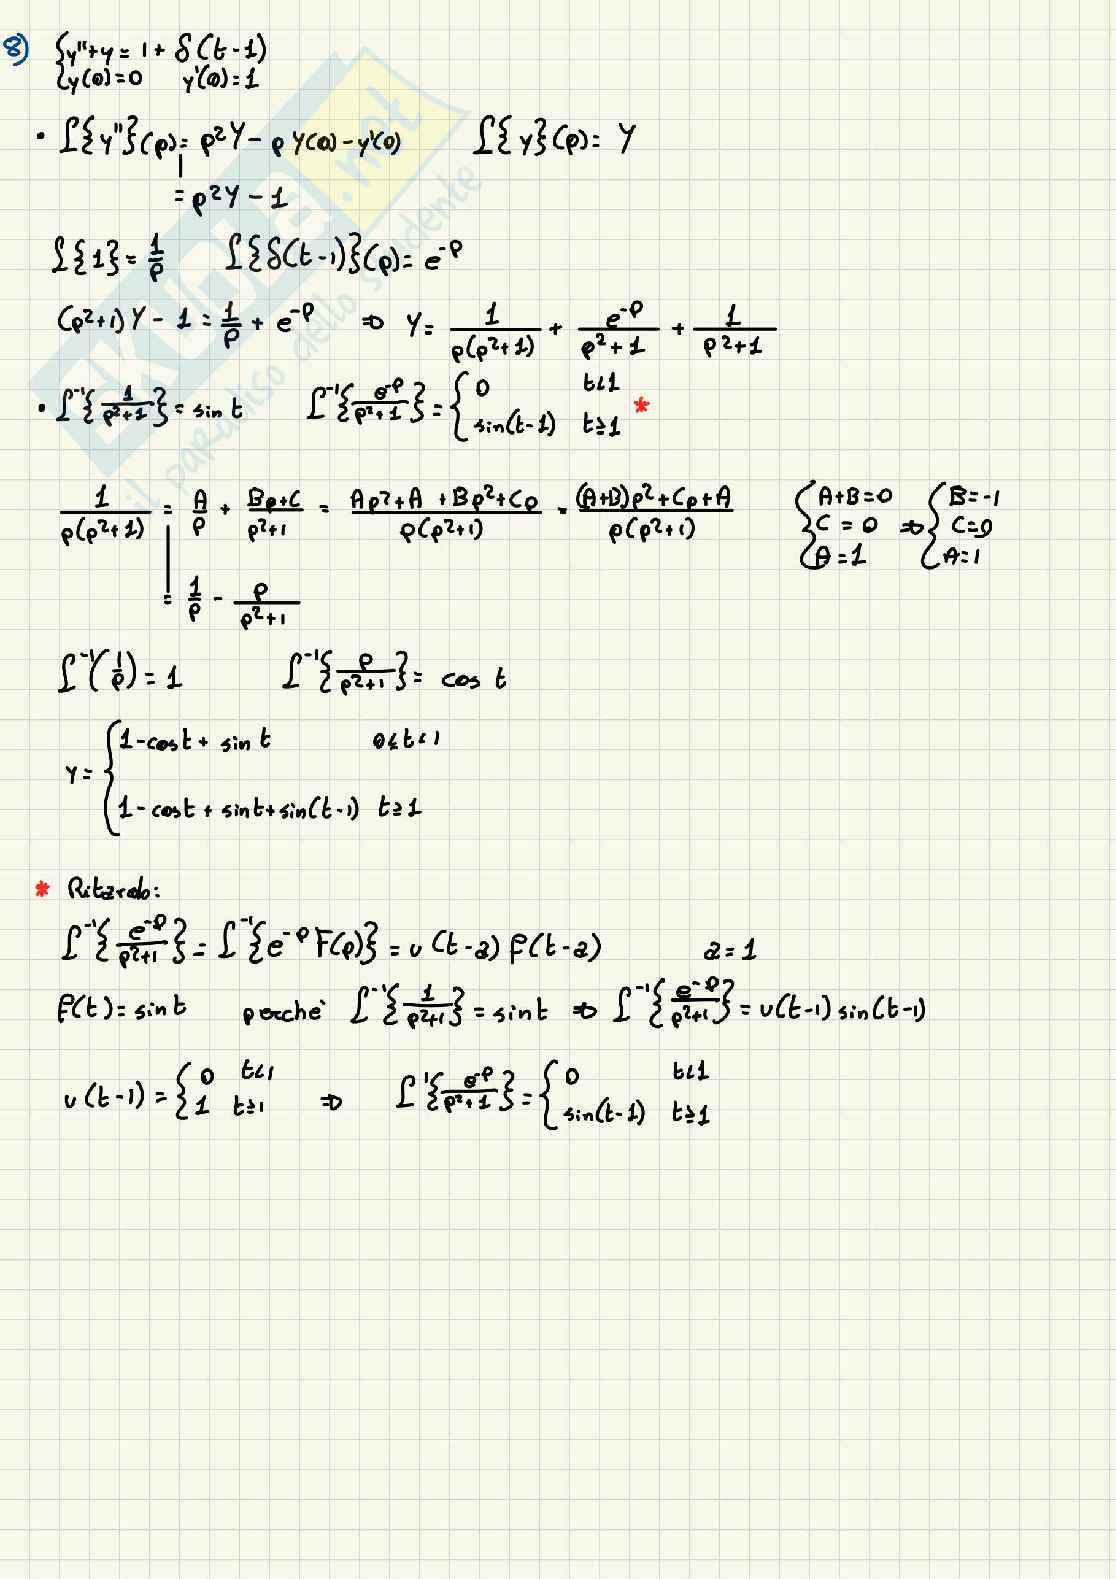 8) {y''+y = 1 + δ(t-1)
{y(0)=0 y'(0)=1
• ℒ{y''}(p) = p²Y - pY(0) - y'(0) ℒ{y}(p) = Y
= p²Y - 1
ℒ{1} = 1/p ℒ{δ(t-1)}(p) = e^-p
(p²+1)Y - 1 = 1/p + e^-p ⇒ Y = 1/(p(p²+1)) + e^-p/(p²+1) + 1/(p²+1)
• ℒ^-1{1/(p²+1)} = sin t ℒ^-1{e^-p/(p²+1)} = {0 t<1
{sin(t-1) t≥1 *
1/(p(p²+1)) = A/p + (Bp+C)/(p²+1) = (Ap²+A+Bp²+Cp)/(p(p²+1)) = ((A+B)p²+Cp+A)/(p(p²+1)) {A+B=0 C=0 A=1 ⇒ {B=-1 C=0 A=1
= 1/p - p/(p²+1)
ℒ^-1(1/p) = 1 ℒ^-1{p/(p²+1)} = cos t
Y = {1-cost + sin t 0≤t<1
{1-cost + sint+sin(t-1) t≥1
* Ritardo:
ℒ^-1{e^-p/(p²+1)} = ℒ^-1{e^-p F(p)} = u(t-a) f(t-a) a=1
f(t) = sin t perché ℒ^-1{1/(p²+1)} = sin t ⇒ ℒ^-1{e^-p/(p²+1)} = u(t-1) sin(t-1)
u(t-1) = {0 t<1 {1 t≥1 ⇒ ℒ^-1{e^-p/(p²+1)} = {0 t<1
{sin(t-1) t≥1
skuola.net
il paradiso dello studente